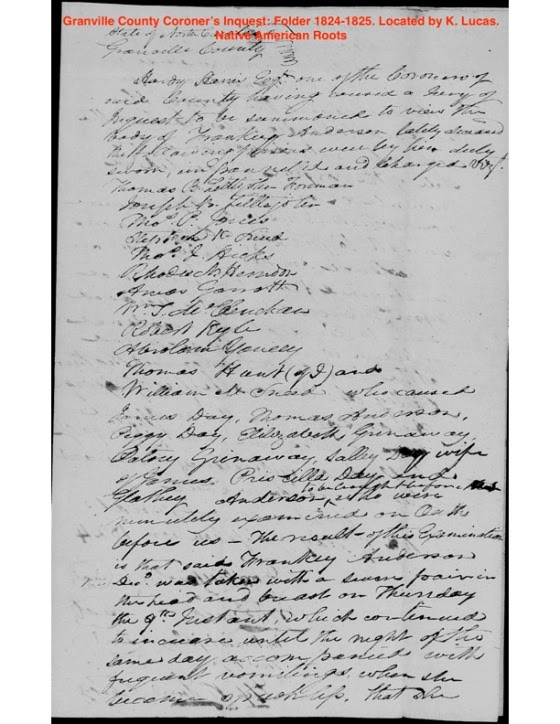 Granville County Coroner's Inquest: Folder 1824-1825. Located by K. Lucas.
Native American Roots
State of North
Granville County
Hardy Harris Esqr. one of the Coroners of
said County having caused a Jury of
Inquest to be summoned to view the
body of Frankey Anderson lately deceased
the following persons were by him duly
sworn, impannelled and charged
Thomas B. Littlejohn Foreman
Joseph Littlejohn
Thos.
Thos. J. Hicks
Rhodes N. Herndon
Amos Garrott
Wm.
Robert Kyle
Absolom Yancey
Thomas Hunt (of J) and
William M Sneed who caused
James Day, Thomas Anderson,
Peggy Day, Elizabeth Grinaway
Patsey Grinaway, Salley wife
of James, Priscilla Day and
Anderson, to be brought before who were
minutely examined on Oath
before us – The result of this Examination
is that said Frankey Anderson
Decd. was taken with a severe pain in
the head and breast on Thursday
the 9th Instant, which continued
to increase until the night of the
same day, accompanied with
frequent vomitings, when she
became speechless. that she